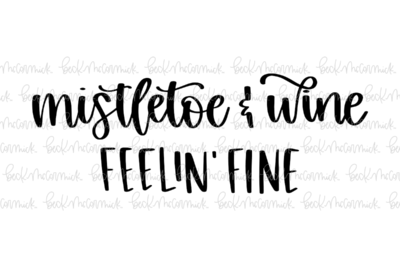 mistletoe & wine
FEELIN' FINE